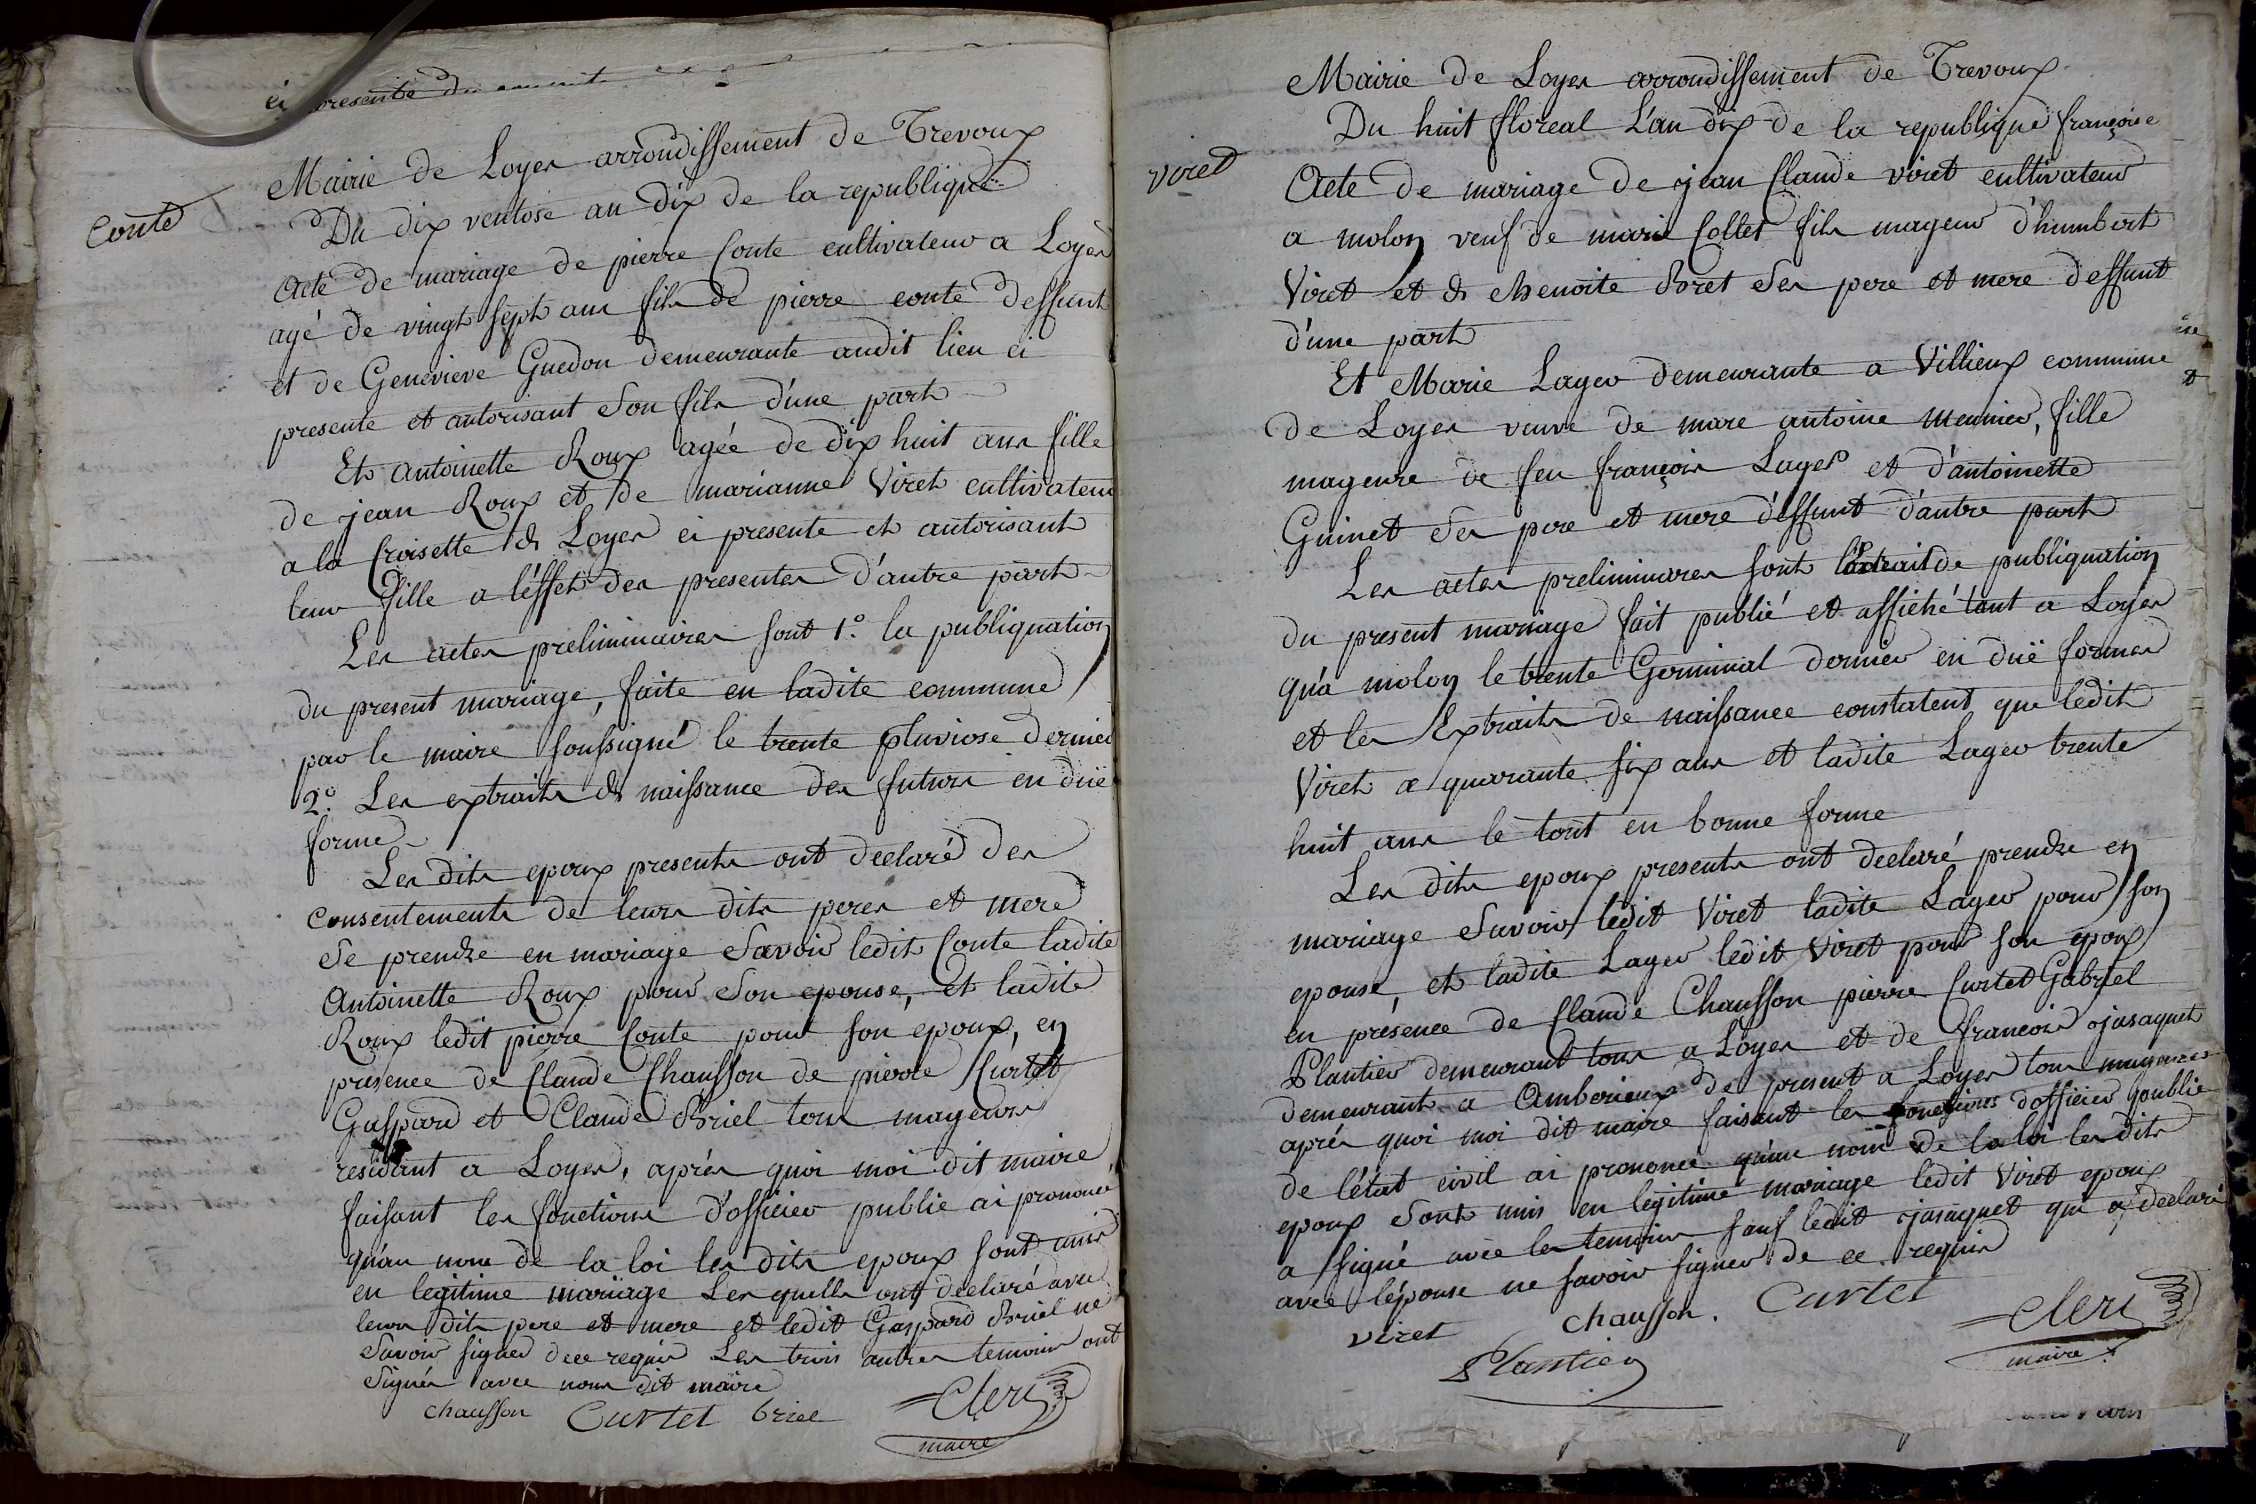 Mairie de Loyes arrondissement de Trevoux
Conte
Du dix ventose an dix de la republique
Acte de mariage de pierre Conte cultivateur a Loyes
agé de vingt sept ans fils de pierre conte deffunt
et de Genevieve Guedon demeurante audit lieu ci
presente et autorisant son fils d'une part
Et antoinette Roux agée de dix huit ans fille
de jean Roux et de marianne Viret cultivateur
a la Croisette de Loyes ci presente et autorisant
leur fille a l'effet des presentes d'autre part
Les actes preliminaires sont 1.º la publiquation
du present mariage, faite en ladite commune
par le maire soussigné le trente pluviose dernier
2.º Les extraits de naissance des futurs en düe
forme
Les dits epoux presents ont declaré des
consentements de leurs dits peres et mere
se prendre en mariage Savoir ledit Conte ladite
Antoinette Roux pour son epouse, et ladite
Roux ledit pierre Conte pour son epoux, en
presence de Claude Chausson de pierre Curtet
Gaspard et Claude Briel tous mageurs
residant a Loyes, après quoi moi dit maire
faisant les fonctions d'officier public ai prononcé
qu'au nom de la loi les dits epoux sont unis
en legitime mariage Les quells ont declaré avec
leurs dits pere et mere et ledit Gaspard Briel ne
Savoir signer de ce requis Les trois autres temoins ont
Signés avec nous dit maire
chausson Curtet briel Cleri
maire
Mairie de Loyes arrondissement de Trevoux
Du huit floreal L'an dix de la republique françoise
viret
Acte de mariage de jean Claude viret cultivateur
a molon veuf de marie Collet fils mageur d'humbert
Viret et de Benoite Boret ses pere et mere deffunt
d'une part
Et Marie Lager demeurante a Villieux commune
de Loyes veuve de marc antoine Meunier, fille
mageure de feu françois Lager et d'antoinette
Guinet ses pere et mere deffunt d'autre part
Les actes preliminares sont l'extrait de publiquation
du present mariage fait publié et affiché tant a Loyes
qu'a molon le trente Germinal dernier en düe formes
et les Extraits de naissance constatent que ledit
Viret a quarante six ans et ladite Lager trente
huit ans le tout en bonne forme
Les dits epoux presents ont declaré prendre en
mariage Savoir ledit Viret ladite Lager pour son
epouse, et ladite Lager ledit Viret pour son epoux
en présence de Claude Chausson pierre Curtet Gabriel
Plantier demeurant tous a Loyes et de francois jasaquet
demeurant a Amberieux de present a Loyes tous mageures
après quoi moi dit maire faisant les fonctions d'officier public
de l'état civil ai prononcé qu'au nom de la loi les dits
epoux sont unis en legitime mariage ledit Viret epoux
a signé avec les temoins sauf ledit jasaquet qui a declaré
avec l'épouse ne savoir signer de ce requis
viret chausson. Curtet Cleri
Plantier maire